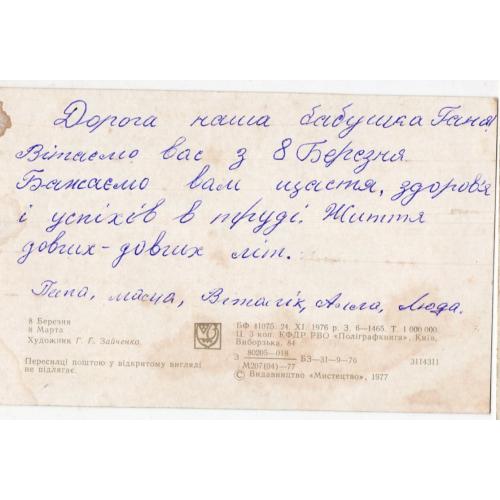 Дорога наша бабушка Ганя!
Вітаємо вас з 8 Березня
Бажаємо вам щастя, здоров'я
і успіхів в труді. Життя
довгих-довгих літ.
Папа, мама, Віталік, Алла, Люда.
8 Березня
8 Марта
Художник Г. Г. Зайченко.
Пересилці поштою у відкритому вигляді
не підлягає.
БФ 41075. 24. XI. 1976 р. З. 6—1465. Т. 1 000 000.
Ц. 3 коп. КФДР РВО «Поліграфкнига», Київ,
Виборзька, 84
З 80205—018 БЗ—31—9—76 3114311
М207(04)—77
© Видавництво «Мистецтво», 1977